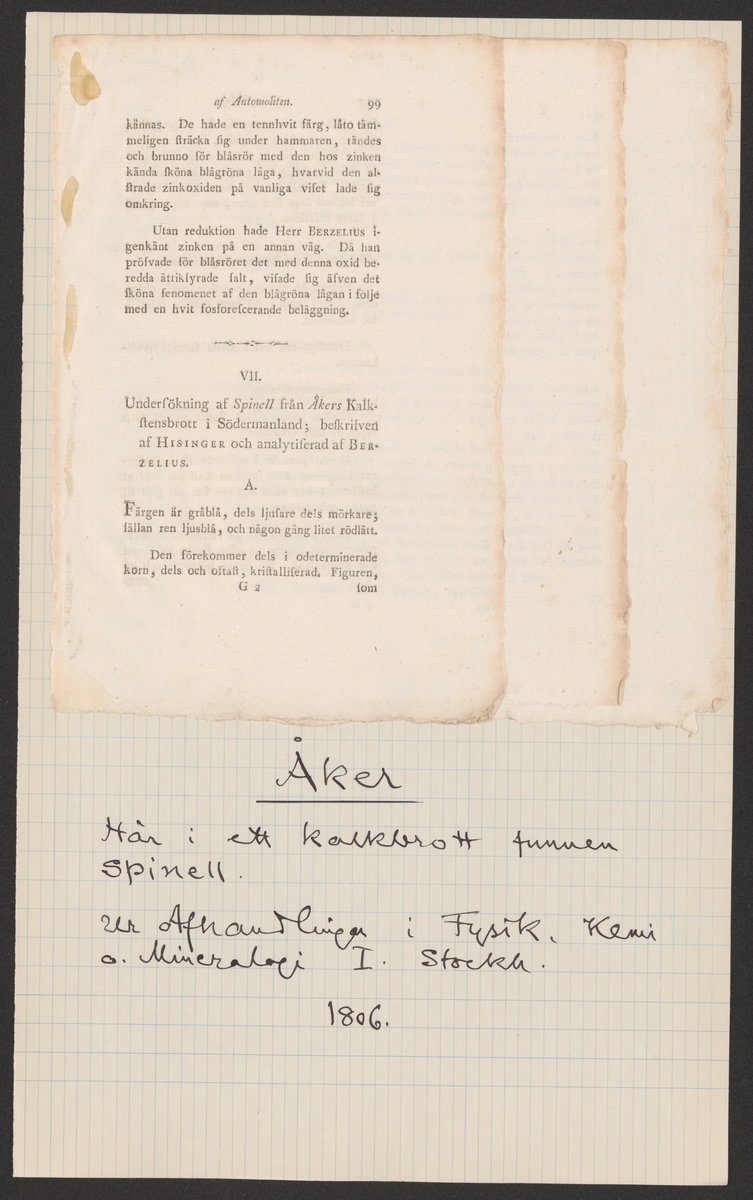 af Automoliten. 99
kännas. De hade en tennhvit färg, låto täm-
meligen ſträcka ſig under hammaren, tändes
och brunno för blåsrör med den hos zinken
kända ſköna blågröna låga, hvarvid den al-
ſtrade zinkoxiden på vanliga viſet lade ſig
omkring.
Utan reduktion hade Herr BERZELIUS i-
genkänt zinken på en annan väg. Då han
pröfvade för blåsröret det med denna oxid be-
redda ättikſyrade ſalt, viſade ſig äfven det
ſköna fenomenet af den blågröna lågan i följe
med en hvit fosforeſcerande beläggning.
VII.
Underſökning af Spinell från Åkers Kalk-
ſtensbrott i Södermanland; beſkrifven
af HISINGER och analytiſerad af BER-
ZELIUS.
A.
Färgen är gråblå, dels ljuſare dels mörkare;
ſällan ren ljusblå, och någon gång litet rödlätt.
Den förekommer dels i odeterminerade
korn, dels och oftaſt, kriſtalliſerad. Figuren,
G 2 ſom
Åker
Här i ett kalkbrott funnen
spinell.
ur Afhandlingar i Fysik, Kemi
o. Mineralogi I. Stockh.
1806.